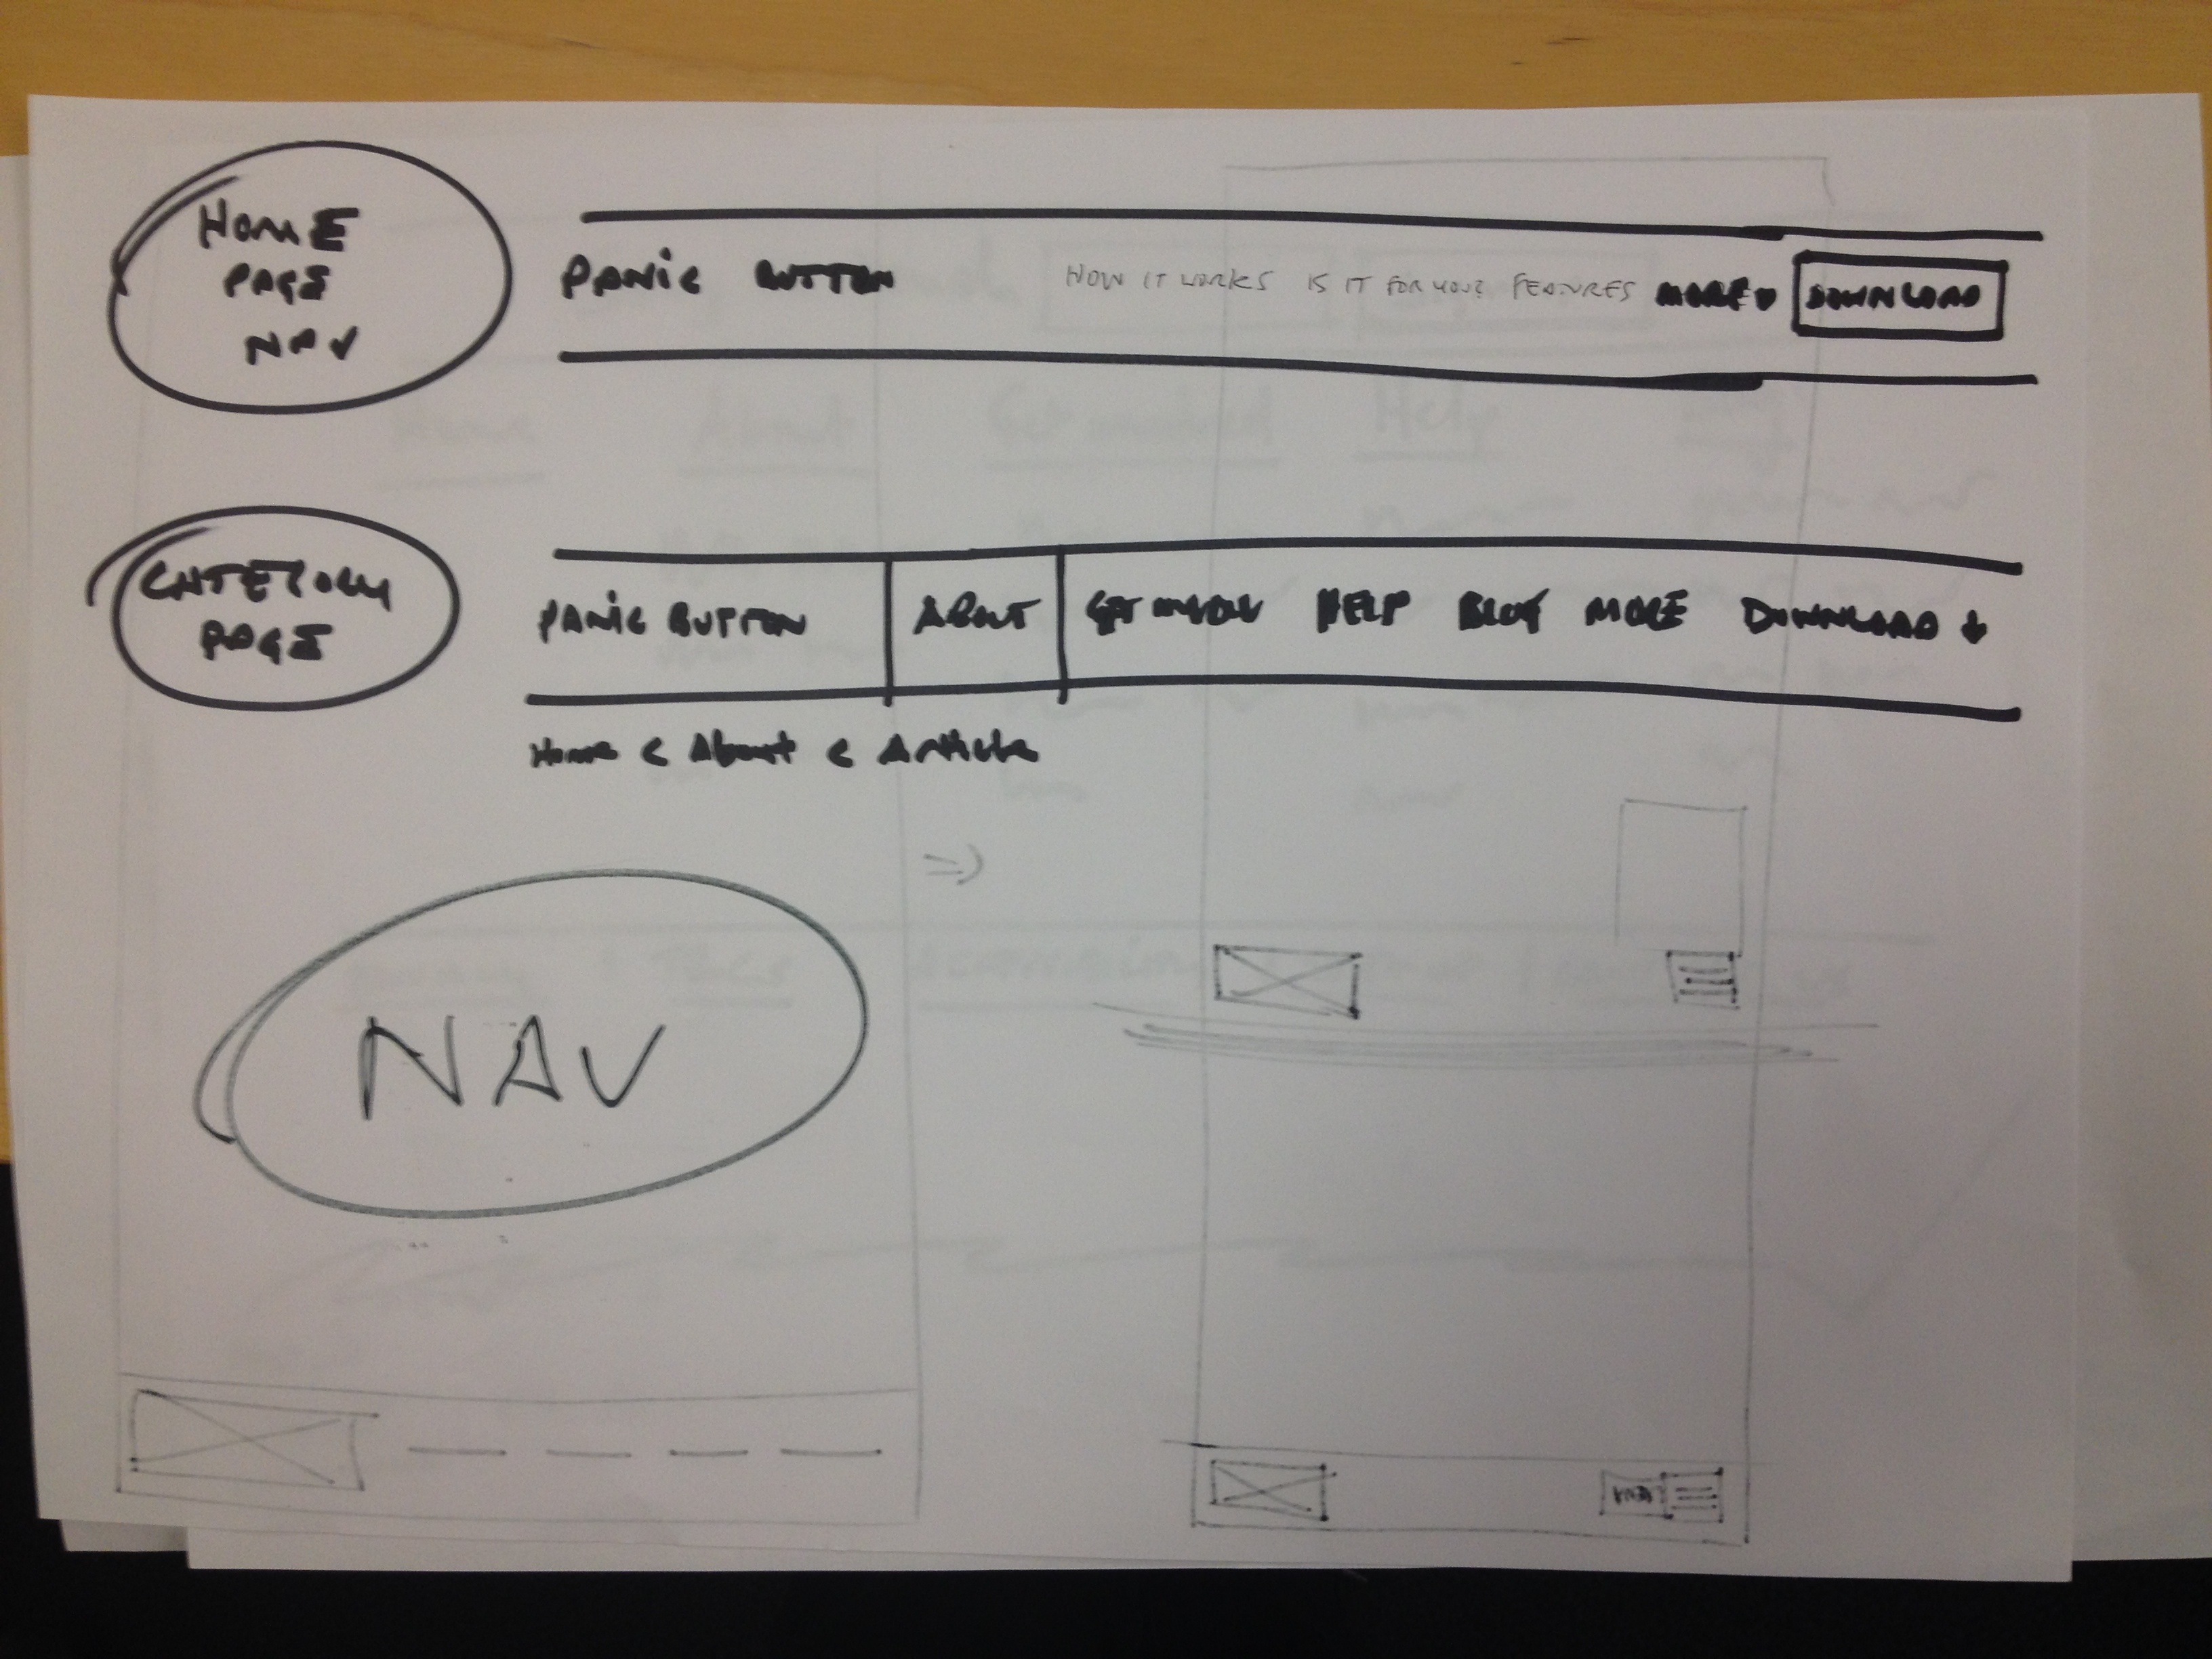 HOME
PAGE
NAV
PANIC BUTTON HOW IT WORKS IS IT FOR YOU? FEATURES MORE DOWNLOAD
Home About Get involved Help
CATEGORY
PAGE
PANIC BUTTON ABOUT GET INVOLV HELP BLOG MORE DOWNLOAD ↓
Home < About < Article
NAV